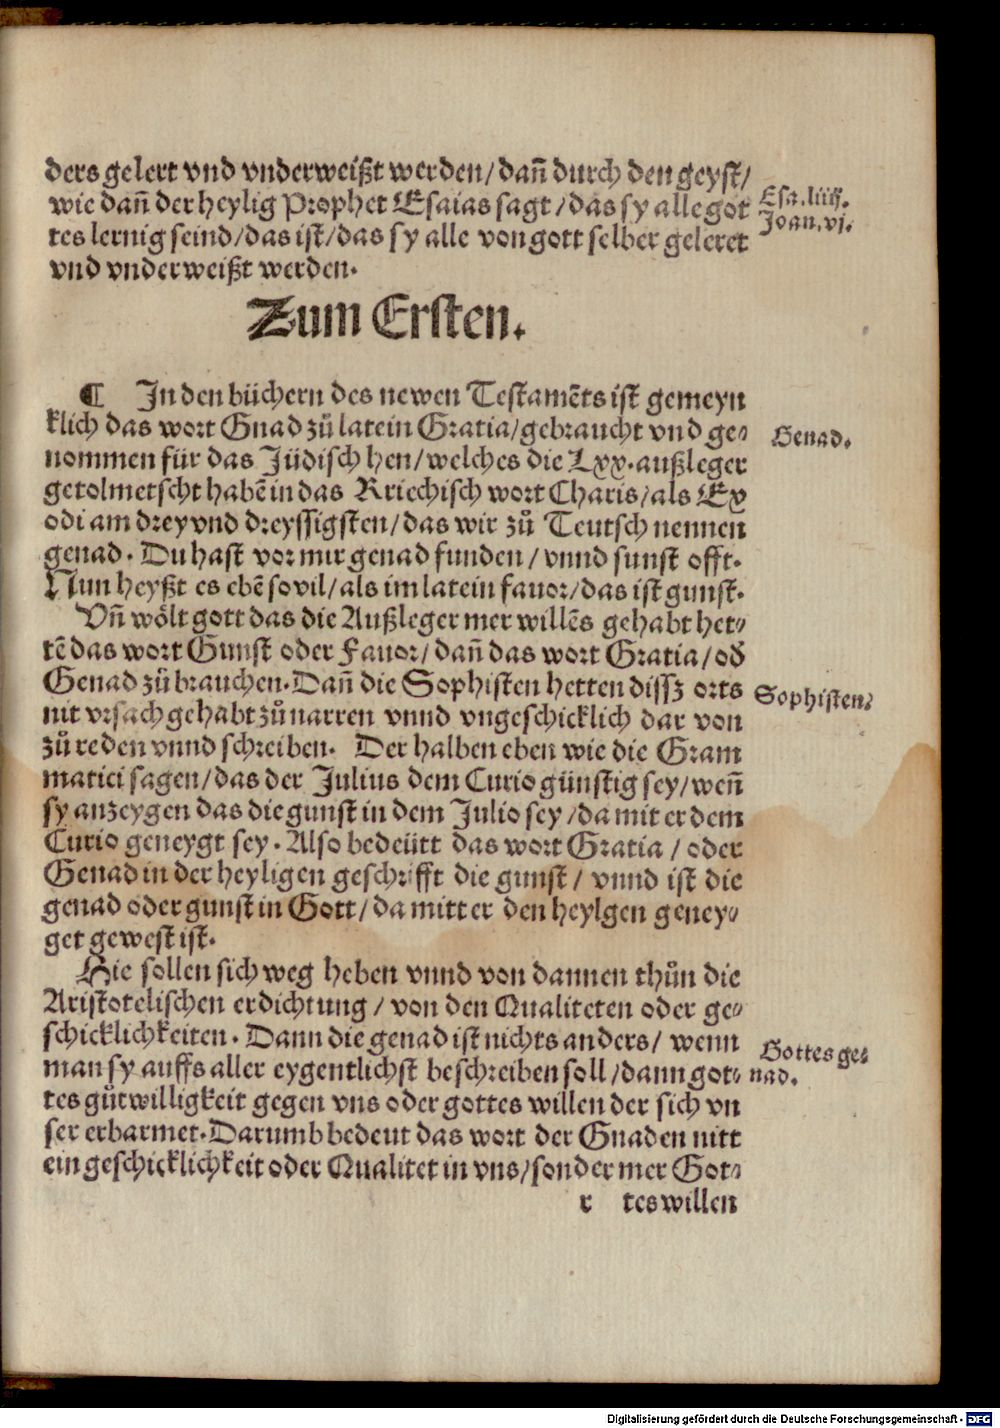 ders gelert vnd vnderweißt werden/ dañ durch den geyst/
wie dañ der heylig Prophet Esaias sagt/ das sy alle got
tes lernig seind/das ist/das sy alle von gott selber geleret
vnd vnderweißt werden.
Esa. liiij.
Joan. vj.
Zum Ersten.
¶ In den büchern des newen Testamẽts ist gemeyn
klich das wort Gnad zů latein Gratia/gebraucht vnd ge⸗
nommen für das Jüdisch hen/welches die Lxx. außleger
getolmetscht habẽ in das Kriechisch wort Charis/als Ex
odi am drey vnd dreyssigsten/das wir zů Teutsch nennen
genad. Du hast vor mir genad funden/ vnnd sunst offt.
Nun heyßt es ebẽ so vil/als im latein fauor/das ist gunst.
Genad.
Vñ wölt gott das die Außleger mer willẽs gehabt het⸗
tẽ das wort Gunst oder Fauor/ dañ das wort Gratia/od̃
Genad zů brauchen. Dañ die Sophisten hetten dissz orts
nit vrsach gehabt zů narren vnnd vngeschicklich dar von
zů reden vnnd schreiben. Der halben eben wie die Gram
matici sagen/das der Julius dem Curio günstig sey/weñ
sy anzeygen das die gunst in dem Julio sey/da mit er dem
Curio geneygt sey. Also bedeütt das wort Gratia/ oder
Genad in der heyligen geschrifft die gunst/ vnnd ist die
genad oder gunst in Gott/da mitt er den heylgen geney⸗
get gewest ist.
Sophisten.
Hie sollen sich weg heben vnnd von dannen thůn die
Aristotelischen erdichtung/ von den Qualiteten oder ge⸗
schicklichkeiten. Dann die genad ist nichts anders/ wenn
man sy auffs aller eygentlichst beschreiben soll/dann got⸗
tes gůtwilligkeit gegen vns oder gottes willen der sich vn
ser erbarmet. Darumb bedeut das wort der Gnaden nitt
ein geschicklichkeit oder Qualitet in vns/sonder mer Got⸗
Gottes ge⸗
nad.
r tes willen
Digitalisierung gefördert durch die Deutsche Forschungsgemeinschaft - DFG